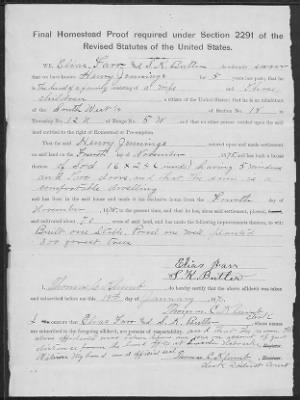 Final Homestead Proof required under Section 2291 of the
Revised Statutes of the United States.
WE, Elias Farr and S. K. Butler
that we have known Henry Jennings for 5 years last past; that he
is the head of a family consisting of a wife and three
children a citizen of the United States; that he is an inhabitant
of the South West ¼ of Section No. 18 in
Township 12 N of Range No. 5 W and that no other person resided upon the said
land entitled to the right of Homestead or Pre-emption.
That the said Henry Jennings entered upon and made settlement
on said land on the Fourth day of November 1875 and has built a house
thereon of Sod 16 x 24 6 having 3 windows
and two doors, and that the same is a
comfortable dwelling
and has lived in the said house and made it his exclusive home from the Fourth day of
November, 1875, to the present time, and that he has, since said settlement, plowed,
and cultivated 50 acres of said land, and has made the following improvements thereon, to wit:
Built one Stable, one well, planted
300 forest trees
Elias Farr
S. K. Butler
I, Thomas C. do hereby certify that the above affidavit was
subscribed before me this day of January 187
Thomas C.
Clerk
I certify that Elias Farr and S. K. Butler
who subscribed to the foregoing affidavit, are persons of respectability. and that
the above
distance from the land office at
Witness my hand and official seal
Clerk District Court